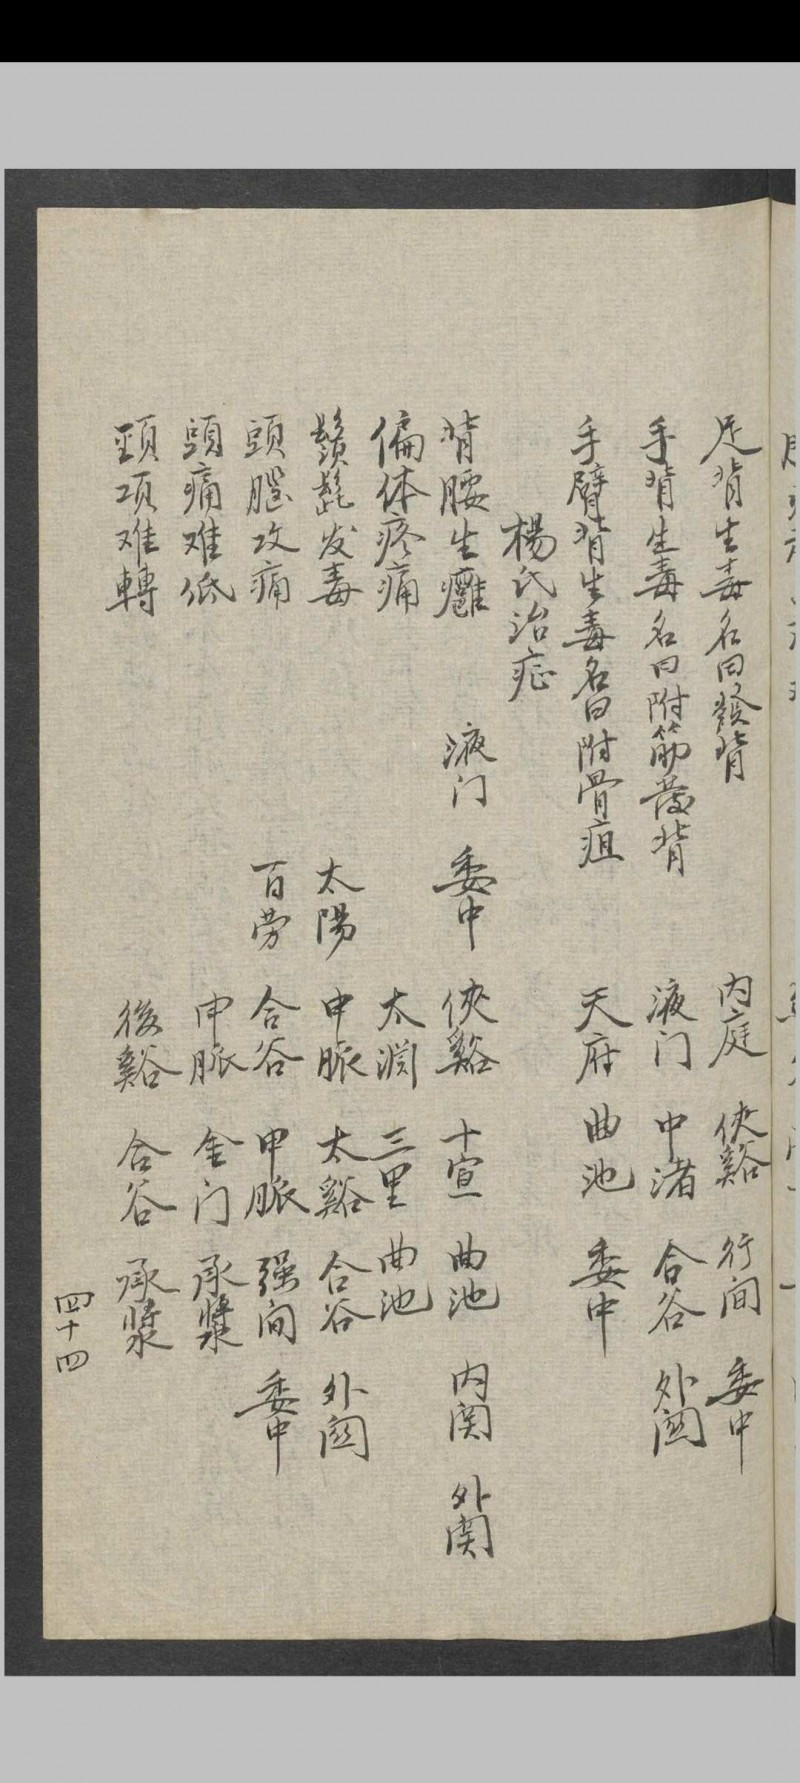 足背生毒名曰發背 内庭 俠谿 行间 委中
手背生毒名曰附筋發背 液门 中渚 合谷 外関
手臂背生毒名曰附骨疽 天府 曲池 委中
楊氏治症
背腰生癰 液门 委中 俠谿 十宣 曲池 内関 外関
偏体疼痛 太渊 三里 曲池
鬓髭发毒 太陽 申脈 太谿 合谷 外関
頭腦攻痛 百劳 合谷 申脈 强间 委中
頭痛难低 申脈 金门 承漿
頸项难轉 後谿 合谷 承漿
四十四